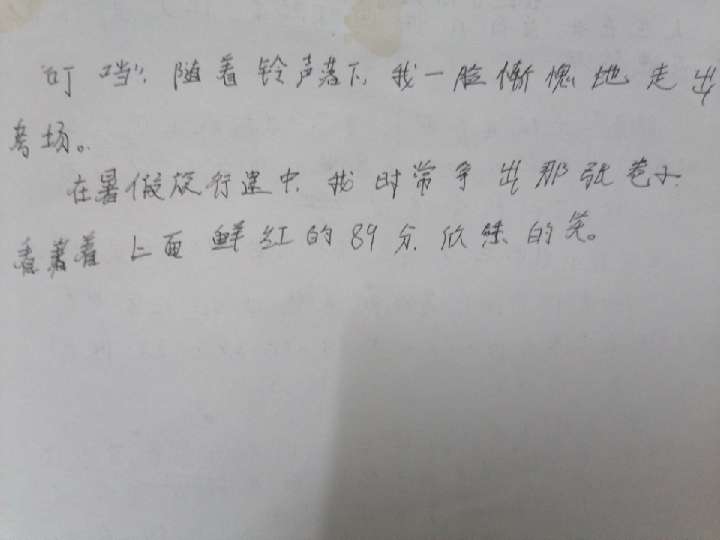 “叮当”，随着铃声落下，我一脸惭愧地走出
考场。
在暑假旅行途中，我时常拿出那张卷子，
看着上面鲜红的89分，欣然的笑。